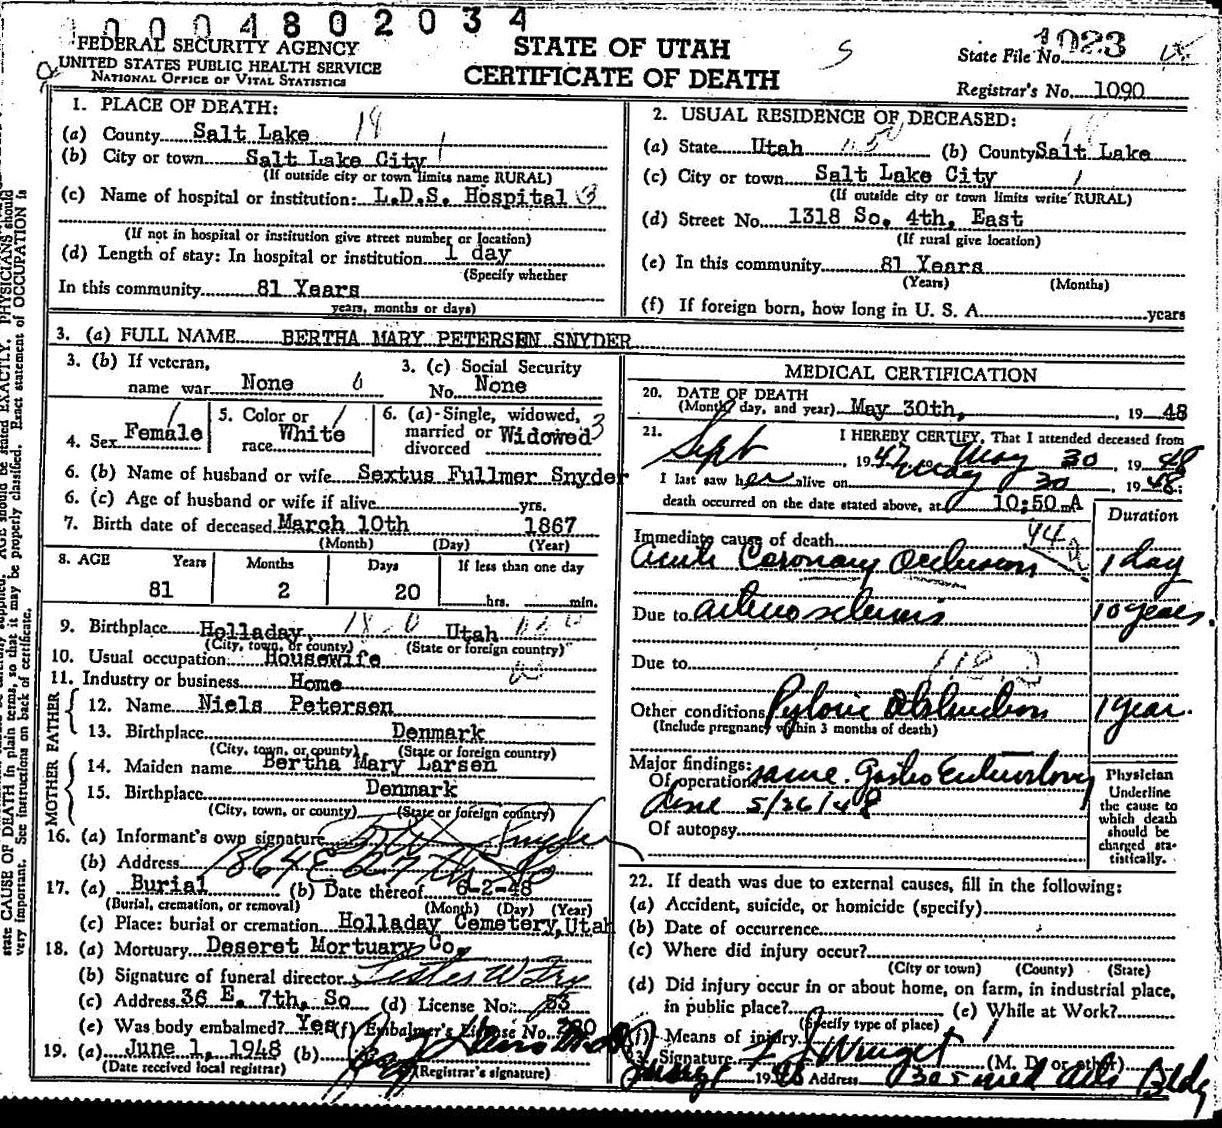 0004802034
FEDERAL SECURITY AGENCY
UNITED STATES PUBLIC HEALTH SERVICE
NATIONAL OFFICE OF VITAL STATISTICS
STATE OF UTAH
CERTIFICATE OF DEATH
S
State File No. 1023
Registrar's No. 1090
1. PLACE OF DEATH:
(a) County Salt Lake 18
(b) City or town Salt Lake City 1
(If outside city or town limits name RURAL)
(c) Name of hospital or institution: L.D.S. Hospital 3
(If not in hospital or institution give street number or location)
(d) Length of stay: In hospital or institution 1 day
(Specify whether
In this community 81 Years
years, months or days)
2. USUAL RESIDENCE OF DECEASED:
(a) State Utah (b) County Salt Lake
(c) City or town Salt Lake City 1
(If outside city or town limits write RURAL)
(d) Street No. 1318 So. 4th, East
(If rural give location)
(e) In this community 81 Years
(Years) (Months)
(f) If foreign born, how long in U. S. A. years
3. (a) FULL NAME BERTHA MARY PETERSEN SNYDER
3. (b) If veteran,
name war None 6
3. (c) Social Security
No. None
4. Sex Female 1
5. Color or
race White 1
6. (a) Single, widowed,
married or Widowed 3
divorced
6. (b) Name of husband or wife Sextus Fullmer Snyder
6. (c) Age of husband or wife if alive yrs.
7. Birth date of deceased March 10th 1867
(Month) (Day) (Year)
8. AGE Years Months Days If less than one day
81 2 20 hrs. min.
9. Birthplace Holladay, Utah
(City, town, or county) (State or foreign country)
10. Usual occupation Housewife
11. Industry or business Home
FATHER
12. Name Niels Petersen
13. Birthplace Denmark
(City, town, or county) (State or foreign country)
MOTHER
14. Maiden name Bertha Mary Larsen
15. Birthplace Denmark
(City, town, or county) (State or foreign country)
16. (a) Informant's own signature Snyder
(b) Address 1864 E 27th So
17. (a) Burial (b) Date thereof 6-2-48
(Burial, cremation, or removal) (Month) (Day) (Year)
(c) Place: burial or cremation Holladay Cemetery, Utah
18. (a) Mortuary Deseret Mortuary Co.
(b) Signature of funeral director
(c) Address 36 E. 7th, So (d) License No. 53
(e) Was body embalmed? Yes (f) Embalmer's License No.
19. (a) June 1, 1948 (b)
(Date received local registrar) (Registrar's signature)
MEDICAL CERTIFICATION
20. DATE OF DEATH
(Month, day, and year) May 30th, , 19 48
21. I HEREBY CERTIFY, That I attended deceased from
Sept 1947 to May 30 , 19 48
I last saw her alive on May 30 , 19 48
death occurred on the date stated above, at 10:50 m A
Duration
Immediate cause of death 44
acute Coronary Occlusion 1 day
Due to arteriosclerosis 10 years.
Due to
Other conditions Pyloric Obstruction 1 year.
(Include pregnancy within 3 months of death)
Major findings:
Of operation same. Gastro Enterostomy
done 5/26/48
Of autopsy
Physician
Underline
the cause to
which death
should be
charged sta-
tistically.
22. If death was due to external causes, fill in the following:
(a) Accident, suicide, or homicide (specify)
(b) Date of occurrence
(c) Where did injury occur?
(City or town) (County) (State)
(d) Did injury occur in or about home, on farm, in industrial place,
in public place? (e) While at Work?
(Specify type of place)
(f) Means of injury
23. Signature (M. D. or other)
19 48 Address 305 Med Arts Bldg